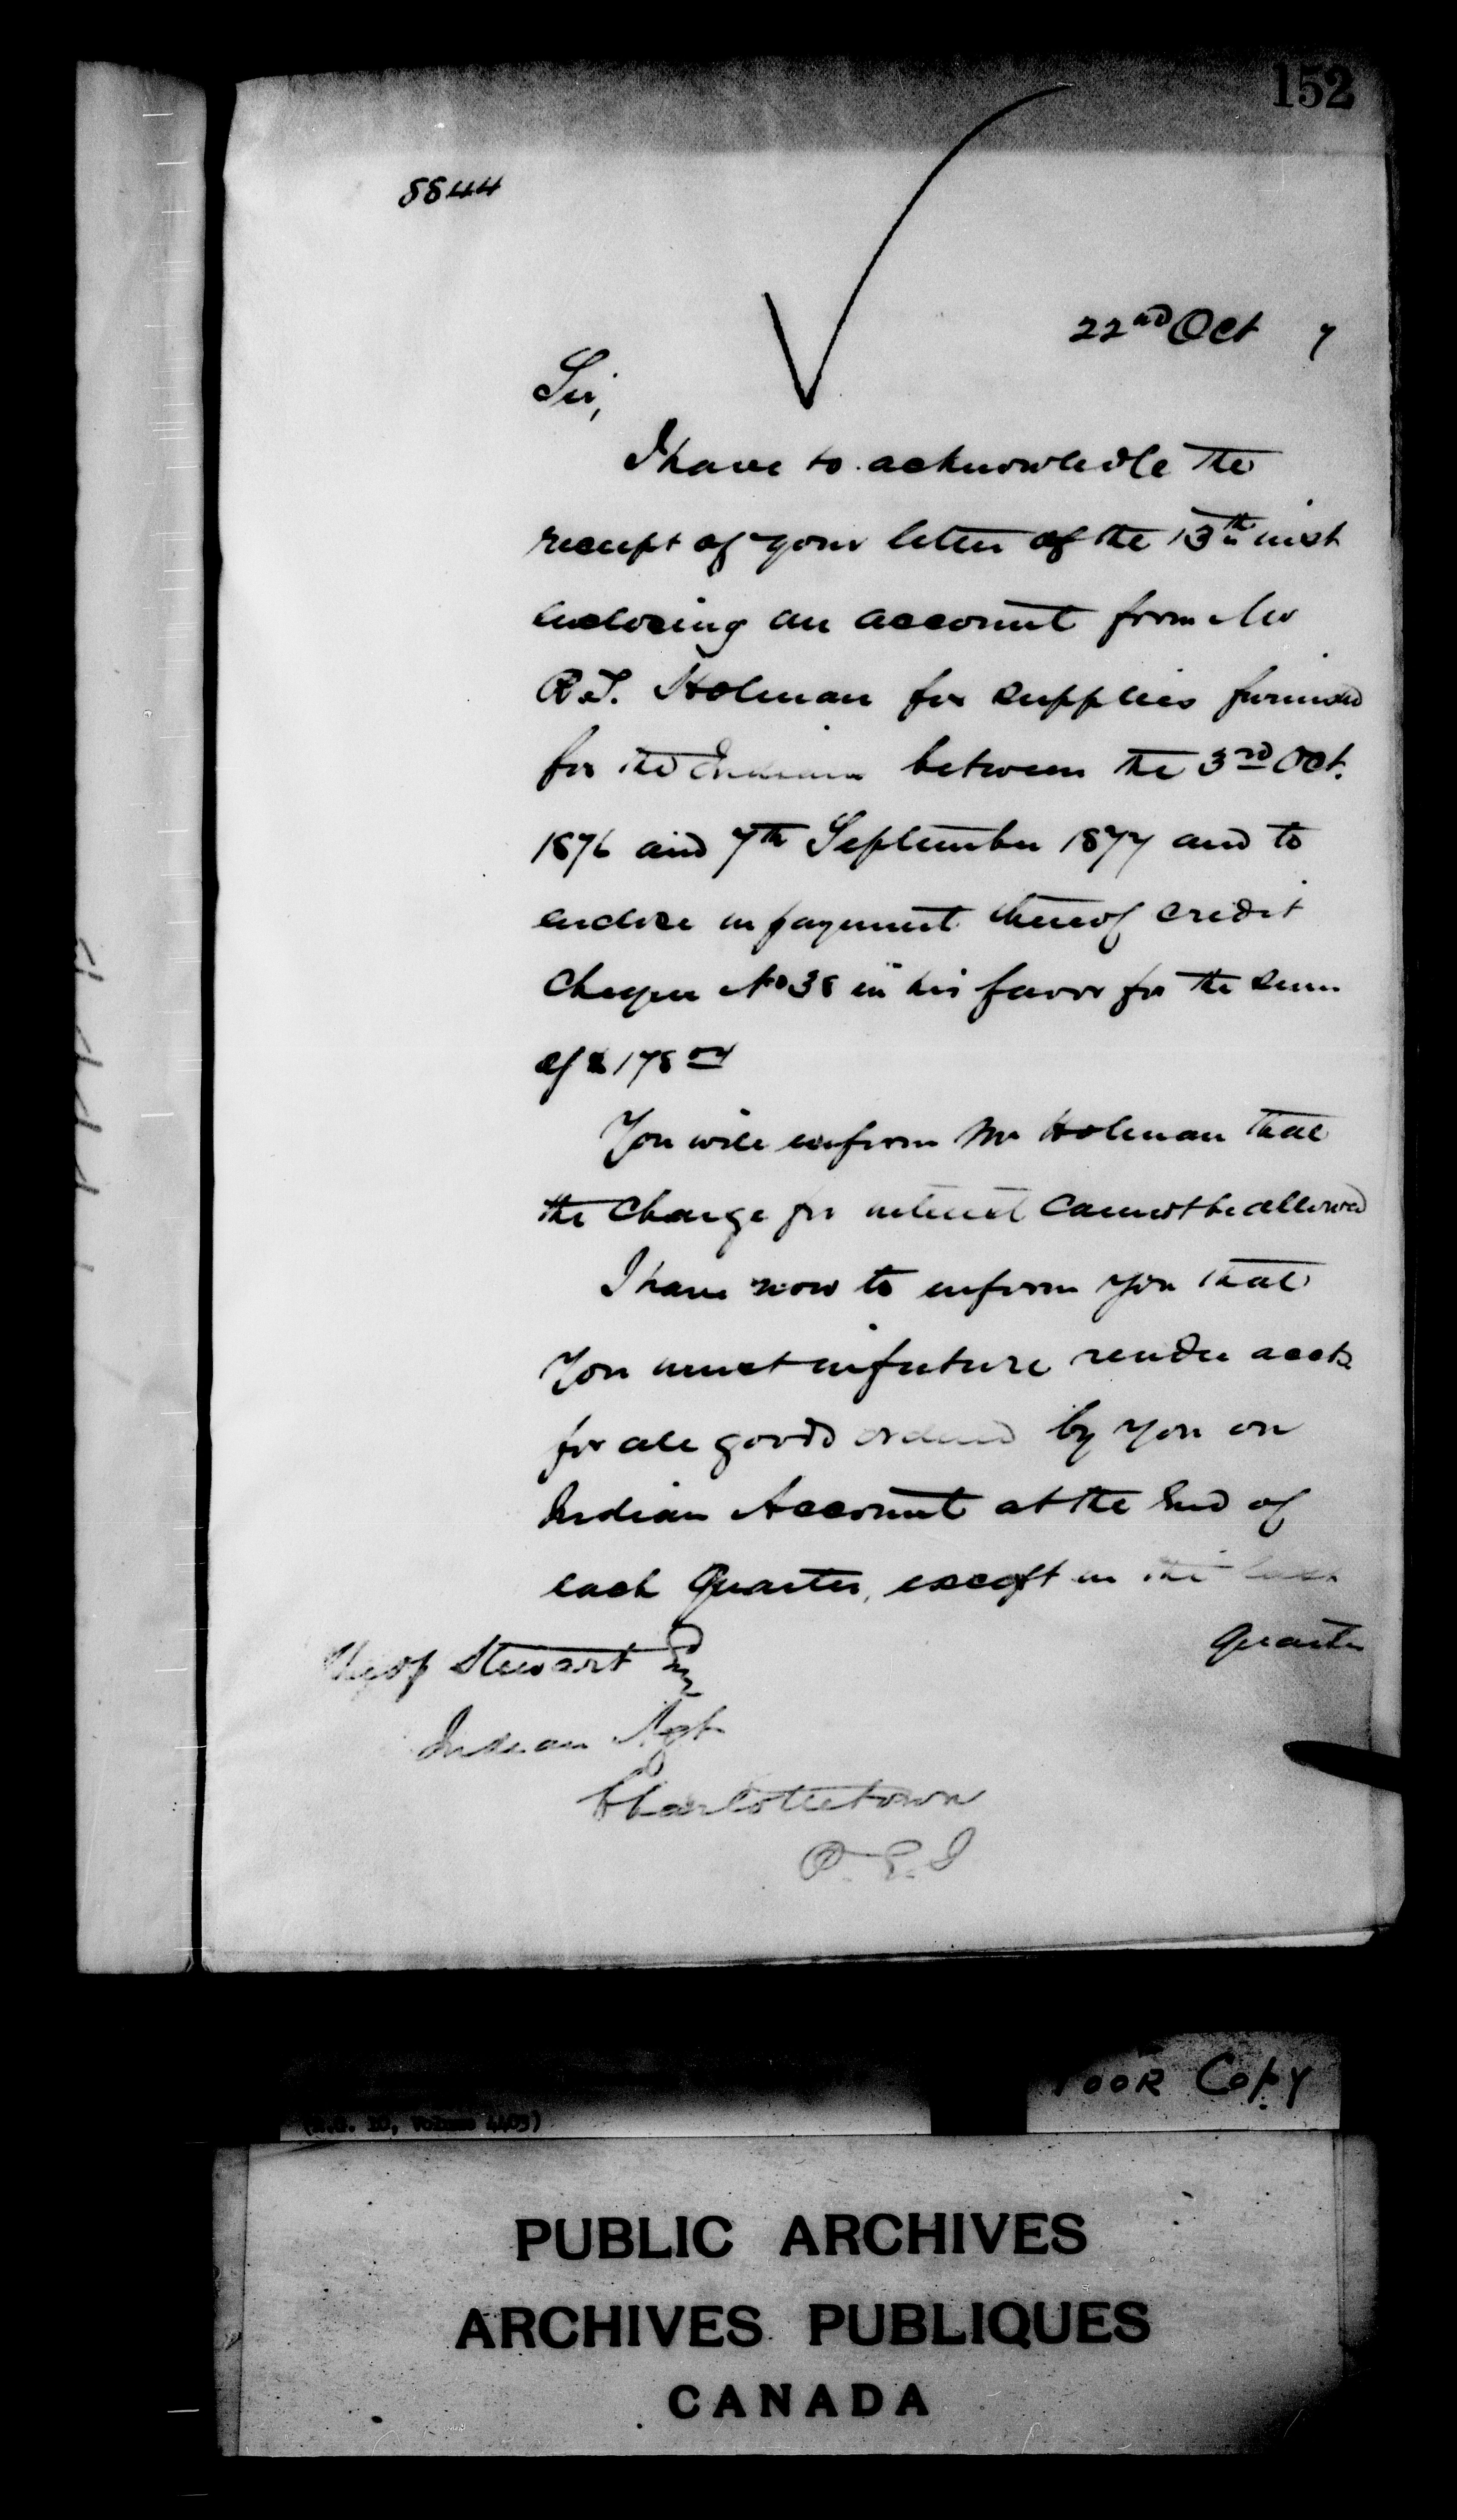 152
8844
22nd Oct 7
Sir,
I have to acknowledge the
receipt of your letter of the 13th inst
enclosing an account from Mr
R.T. Holman for supplies furnished
for the Indians between the 3rd Oct.
1876 and 7th September 1877 and to
enclose in payment thereof credit
Cheque No 38 in his favor for the sum
of $178
You will inform Mr Holman that
the Charge for interest Cannot be allowed
I have now to inform you that
You must in future render accts
for all goods ordered by you on
Indian Account at the End of
each Quarter, except in the
quarter
Theop Stewart Esq
Indian Agt
Charlottetown
P.E.I
Poor Copy
(R.G. 10, Volume 4409)
PUBLIC ARCHIVES
ARCHIVES PUBLIQUES
CANADA